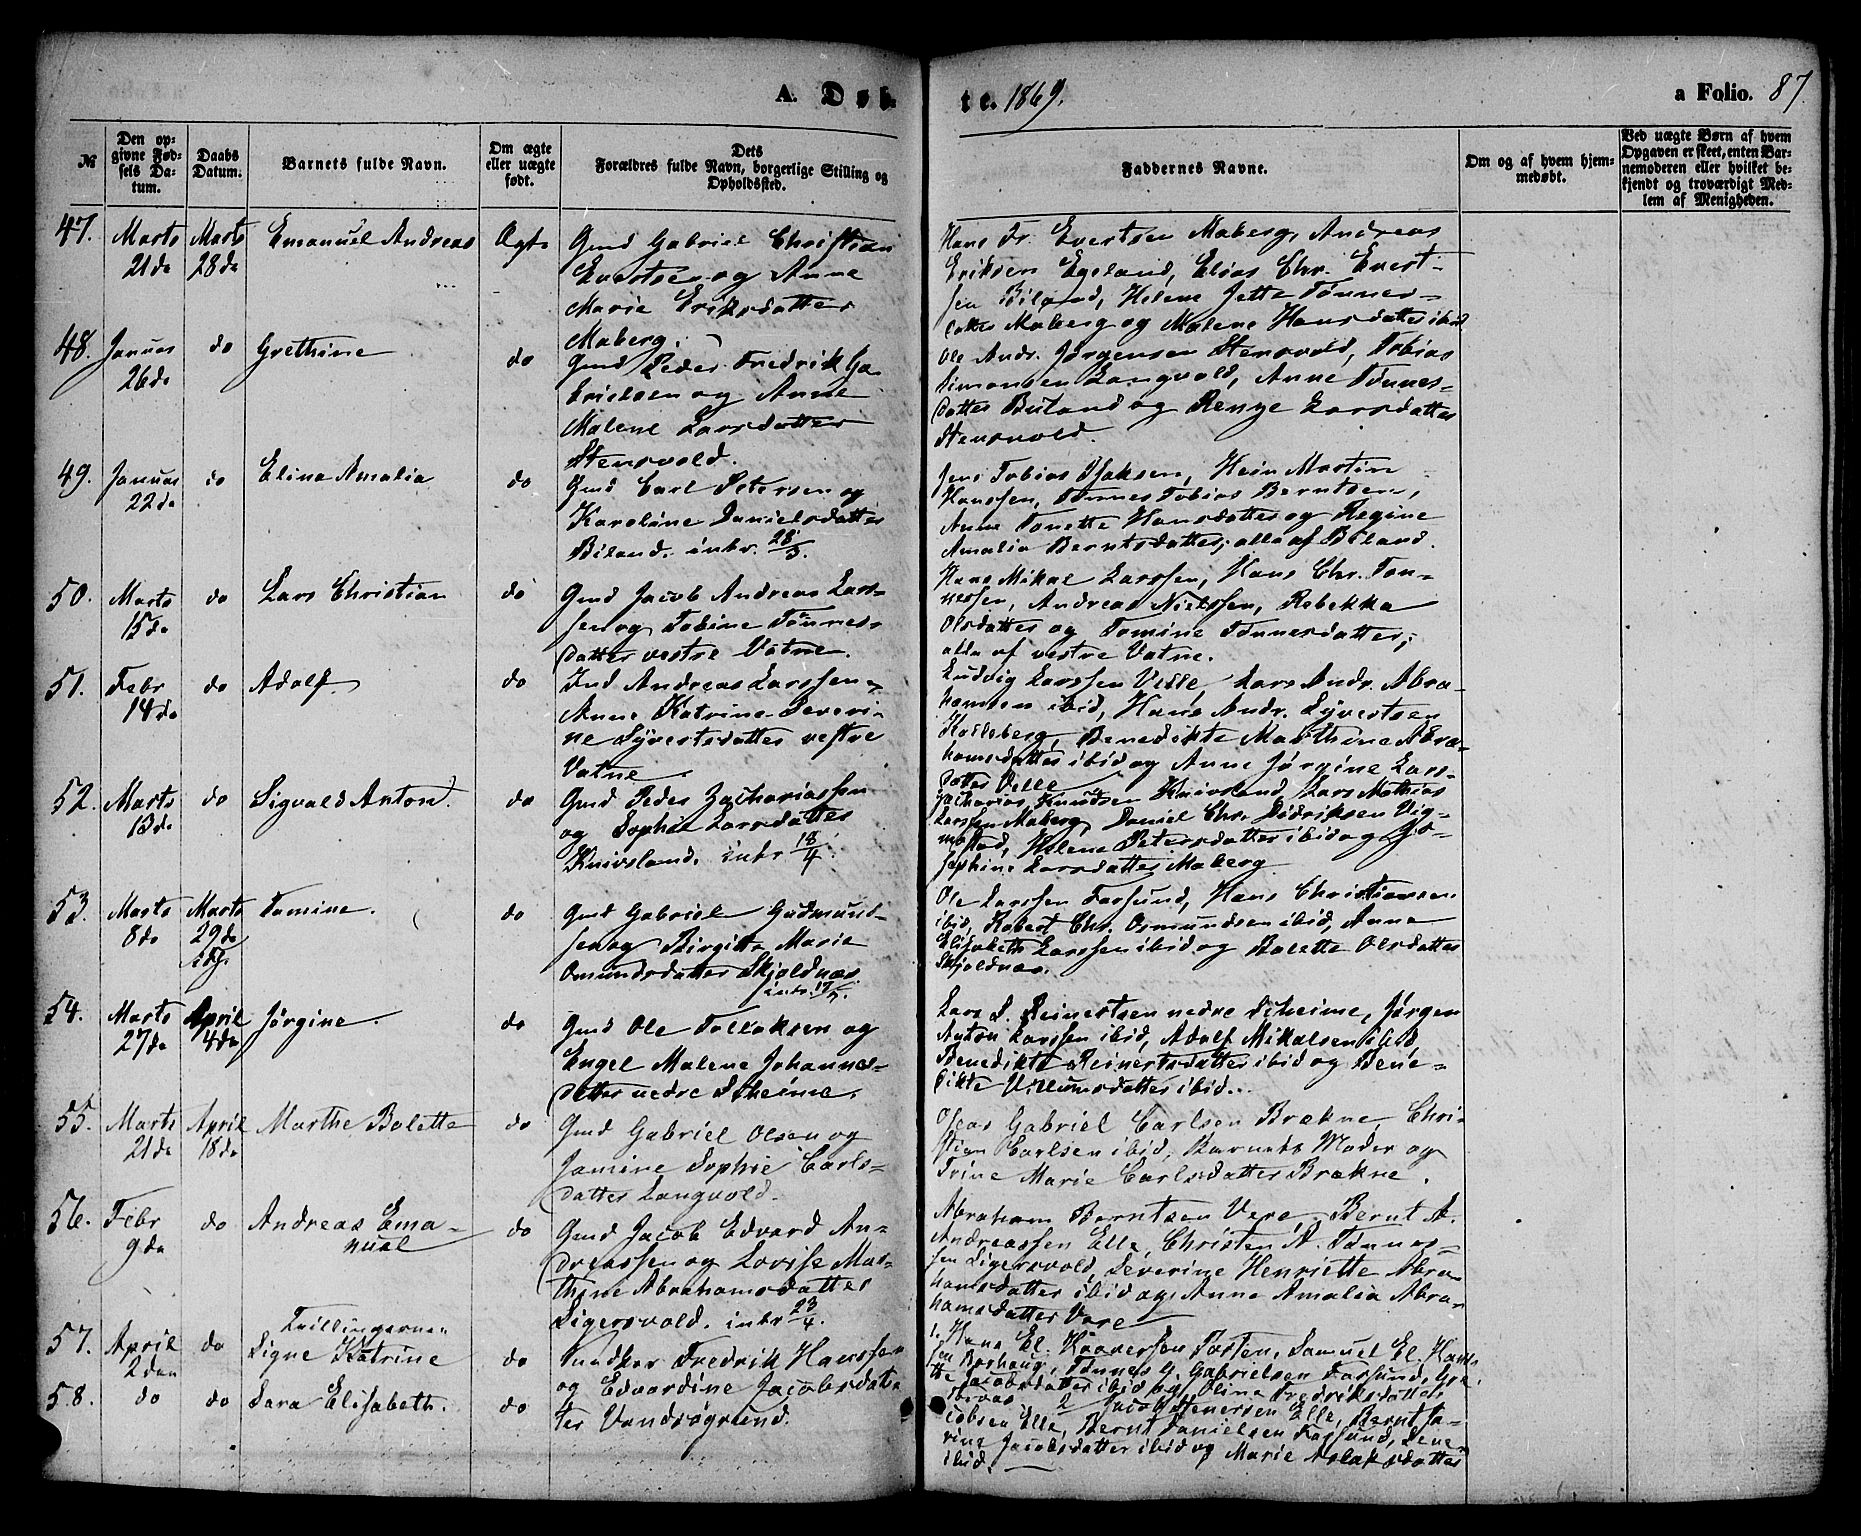 A. Døb-
te. 1869.
a Folio. 87.
№
Den op-
givne Fød-
sels Da-
tum.
Daabs
Datum.
Barnets fulde Navn.
Om ægte
eller uægte
født.
Dets
Forældres fulde Navn, borgerlige Stilling og
Opholdssted.
Faddernes Navne.
Om og af hvem hjem-
medøbt.
Ved uægte Børn af hvem
Opgaven er skeet, enten Bar-
nemoderen eller hvilket be-
kjendt og troværdigt Med-
lem af Menigheden.
47. Marts Marts Emanuel Andreas Ægte Gmd Gabriel Christian
21de 28de Evertsen og Anne
Marie Eriksdatter
Maberg.
Hans Fr. Evertsen Maberg, Andreas
Eriksen Egeland, Elias Chr. Evert-
sen Biland, Helene Jette Tønnes-
datter Maberg og Malene Hansdatter ibid
48. Januar do Grethine do Gmd Peder Fredrik Ga-
26de brielsen og Anne
Malene Larsdatter
Stensvold.
Ole Andr. Jørgensen Stensvold, Tobias
Simonsen Langvold, Anne Tønnes-
datter Buland og Renge Larsdatter
Stensvold.
49. Januar do Elina Amalia do Gmd Carl Petersen og
22de Karoline Danielsdatter
Biland. intr. 28/3.
Jens Tobias Isaksen, Hein Martin
Hanssen, Tønnes Tobias Berntsen,
Anne Tonette Hansdatter og Regine
Amalia Berntsdatter, alle af Biland.
50. Marts do Lars Christian do Gmd Jacob Andreas Lars-
15de sen og Tobine Tønnes-
datter vestre Vatne.
Hans Mikal Larssen, Hans Chr. Tøn-
nessen, Andreas Nielssen, Rebekka
Olsdatter og Tomine Tønnesdatter,
alle af vestre Vatne.
51. Febr do Adolf do Ind Andreas Larssen og
14de Anne Katrine Severi-
ne Syvertsdatter vestre
Vatne.
Ludvig Larssen Velle, Lars Andr. Abra-
hamsen ibid, Hans Andr. Syvertsen
Kolleberg, Benedikte Marthine Abra-
hamsdatter ibid og Anne Jørgine Lars-
datter Velle
52. Marts do Sigvald Anton. do Gmd Peder Zachariassen
13de og Sophie Larsdatter
Knivsland. intr 18/4.
Zacharias Knudsen Knivsland, Lars Mathias
Larssen Maberg, Daniel Chr. Didriksen Vig-
mostad, Helene Petersdatter ibid og Jo-
sephine Larsdatter Maberg
53. Marts Marts Tomine. do Gmd Gabriel Gudmund-
8de 29de sen og Birgitte Marie
Omundsdatter Skjoldnæs
intr.
Ole Larssen Farsund, Hans Christiansen
ibid, Robert Chr. Osmundsen ibid, Anne
Elisabeth Larssen ibid og Bolette Olsdatter
Skjoldnæs.
54. Marts April Jørgine. do Gmd Ole Tollaksen og
27de 4de Engel Malene Johannes-
datter nedre Skeime.
Lars S. Reinertsen nedre Skeime, Jørgen
Anton Larssen ibid, Adolf Mikalsen ibid,
Benedikte Reinertsdatter ibid og Bene-
dikte Villumsdatter ibid.
55. Marts April Marthe Bolette do Gmd Gabriel Olsen og
21de 18de Jamine Sophie Carls-
datter Langvold.
Oseas Gabriel Carlsen Brækne, Chri-
stian Carlsen ibid, Barnets Moder og
Trine Marie Carlsdatter Brækne.
56. Febr do Andreas Ema- do Gmd Jacob Edvard An-
9de nuel dreassen og Lovisse Mar-
thine Abrahamsdatter
Sigersvold. intr 23/4.
Abraham Berntsen Vere, Bernt A.
Andreassen Elle, Christen A. Tønnes-
sen Sigersvold, Severine Henriette Abra-
hamsdatter ibid og Anne Amalia Abra-
hamsdatter Vere
Tvillingerne
57. April do Signe Katrine do Snedker Fredrik Hanssen
2den og Edvardine Jacobsdat-
58. do do Sara Elisabeth. do ter Vandsøgrund.
1. Hans El. Haaversen Torsten, Samuel El. Hans-
sen Borhaug, Tønnes G. Gabrielsen Farsund,
Jacobsdatter ibid og Oline Fredriksdatter
2 Jacob Stenersen Elle, Bernt Ja-
cobsen Elle, Bernt Danielsen Farsund,
rine Jacobsdatter ibid og Marie Aslaksdatter
ibid.